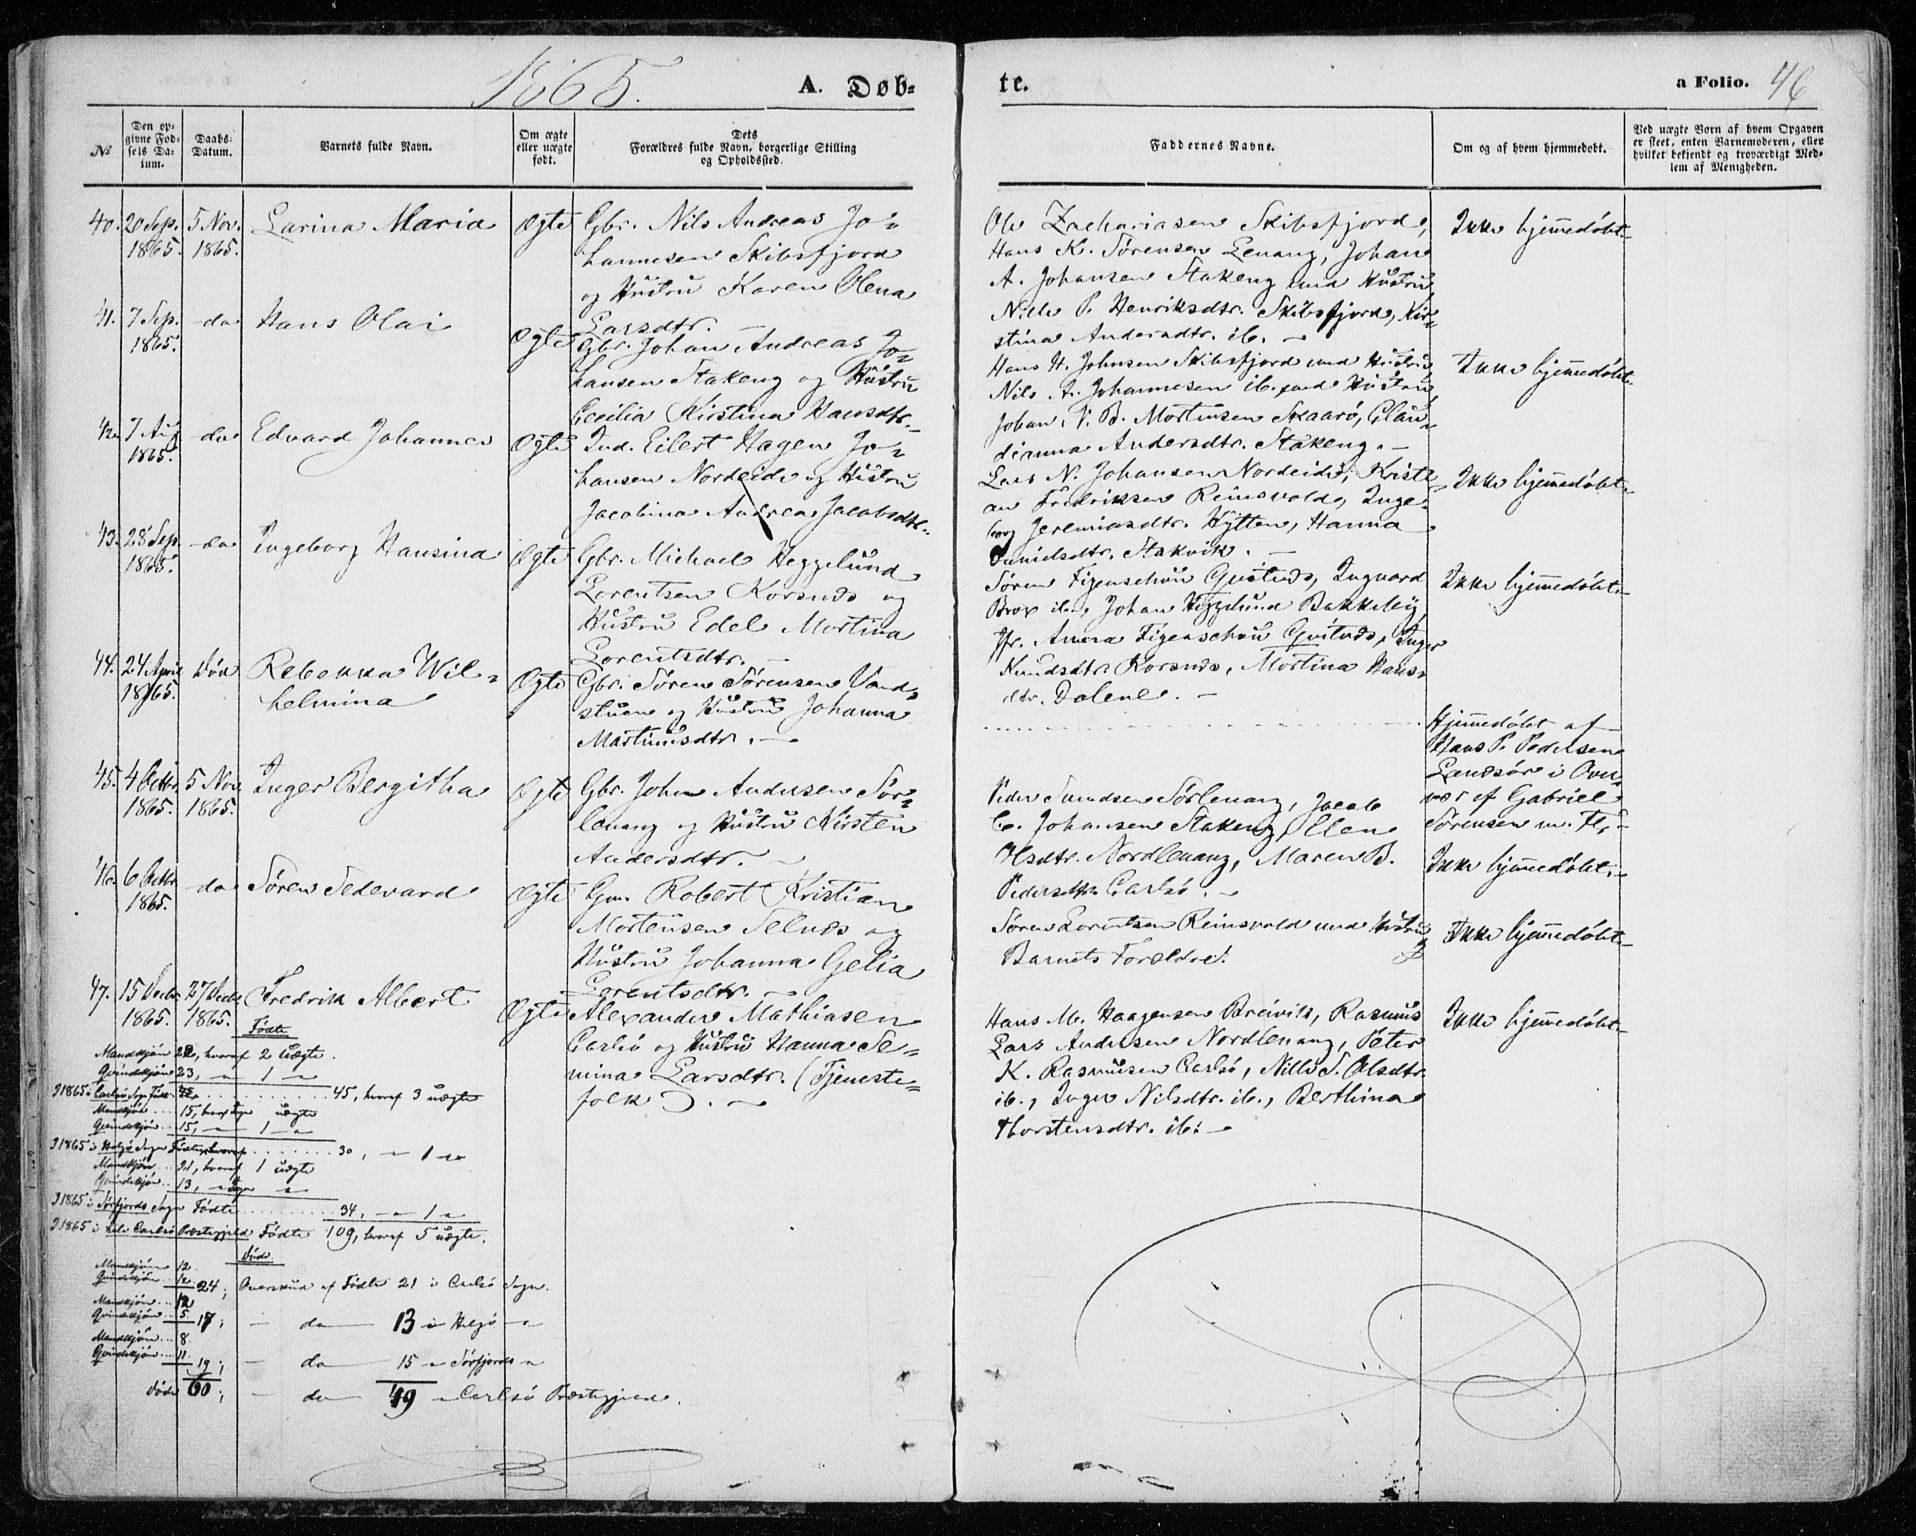 1865.
A. Døb-
te.
a Folio. 46
№
Den op-
givne Fød-
sels Da-
tum.
Daabs-
Datum.
Barnets fulde Navn.
Om ægte
eller uægte
født.
Dets
Forældres fulde Navn, borgerlige Stilling
og Opholdssted.
Faddernes Navne.
Om og af hvem hjemmedøbt.
Ved uægte Børn af hvem Opgaven
er skeet, enten Barnemoderen, eller
hvilket bekjendt og troværdigt Med-
lem af Menigheden.
40. 20 Sep. 1865. 5 Nov. 1865. Larina Maria Ægte
Gbr. Nils Andreas Jo-
hannesen Skibsfjord
og Hustru Karen Olena
Larsdtr.
Ole Zachariasen Skibsfjord,
Hans K. Sørensen Lenang, Johan
A. Johansen Stakeng med Hustru,
Nille P. Henriksdtr. Skibsfjord, Kir-
stina Andersdtr. ib. —
Ikke hjemmedøbt
41. 7 Sep. 1865. do Hans Olai Ægte
Gbr. Johan Andreas Jo-
hansen Stakeng og Hustru
Cecilia Kirstina Hansdtr.
Hans H. Johnsen Skibsfjord med Hustru
Nils A. Johannesen ib. med Hustru
Johan V. B. Mortensen Skaarø, Clau-
dianna Andersdtr. Stakeng. —
Ikke hjemmedøbt
42. 7 Aug 1865. do Edvard Johannes Ægte
Ind. Eilert Hagen Jo-
hansen Nordeide og Hustru
Jacobina Andrea Jacobsdtr.
Lars N. Johansen Nordeide, Kristi-
an Fredriksen Reinsvold, Inge-
borg Jeremiasdtr. Hytten, Hanna
Danielsdtr. Stakvik. —
Ikke hjemmedøbt
43. 28 Sep. 1865. do Ingeborg Hansina Ægte
Gbr. Michael Heggelund
Lorentsen Korsnes og
Hustru Edel Martina
Lorentsdtr. —
Søren Figenschou Gvitnes, Ingvard
Brox ib., Johan Heggelund Bakkeby
Fr. Anna Figenschou Gvitnes, Inger
Knudsdtr. Korsnes, Martina Hans-
dtr. Dalene. —
Ikke hjemmedøbt
44. 24 April 1865. Død Rebekka Wil-
helmina Ægte
Gbr. Søren Sørensen Vand-
stuen og Hustru Johanna
Martinusdtr. —
Hjemmedøbt af
Hans P. Pedersen
i Over-
vær af Gabriel
Sørensen m. Fl.
45. 4 Octbr. 1865. 5 Nov. 1865. Inger Bergitha Ægte
Gbr. John Andersen Sør-
lenang og Hustru Kirsten
Andersdtr. —
Peder Sørlenang, Jacob
C. Johansen Stakeng, Elen
Olsdtr. Nordlenang, Maren B.
Pedersdtr. Carlsø. —
Ikke hjemmedøbt
46. 6 Octbr. 1865. do Søren Sedevard Ægte
Gm. Robert Kristian
Mortensen Selnes og
Hustru Johanna Gelia
Lorentsdtr. —
Søren Lorentsen Reinsvold med Hustru
Barnets Forældre.
Ikke hjemmedøbt
47. 15 Decbr. 1865. 27 Decbr. 1865. Fredrik Albert Ægte
Alexander Mathiasen
Carlsø og Hustru Hanna Se-
mina Larsdtr. (Tjeneste-
folk). —
Hans M. Haagensen Breivik, Rasmus
Lars Andersen Nordlenang, Peter
K. Rasmusen Carlsø, Nille S. Olsdtr.
ib., Inger Nilsdtr. ib., Berthina
Thorstensdtr. ib. —
Ikke hjemmedøbt
Fødte
Mandkjøn 22, hvoraf 2 uægte.
Qvindekjøn 23, — 1 —
I 1865 i Carlsø Sogn Fødte 45, hvoraf 3 uægte
Mandkjøn 15, hvoraf ingen uægte
Qvindekjøn 15, — 1 —
I 1865 i Helgø Sogn Fødte 30, — 1 —
Mandkjøn 21, hvoraf 1 uægte
Qvindekjøn 13, — ingen —
I 1865 i Sørfjords Sogn Fødte 34, — 1 —
I 1865 i hele Carlsø Præstegjeld Fødte 109, hvoraf 5 uægte.
Døde.
Mandkjøn 12
Qvindekjøn 12 24, Overskud af Fødte 21 i Carlsø Sogn.
Mandkjøn 12
Qvindekjøn 5 17, — do — 13 i Helgø —
Mandkjøn 8
Qvindekjøn 11 19, — do — 15 — Sørfjords —
Døde 60, — do — 49 — Carlsø Præstegjeld.